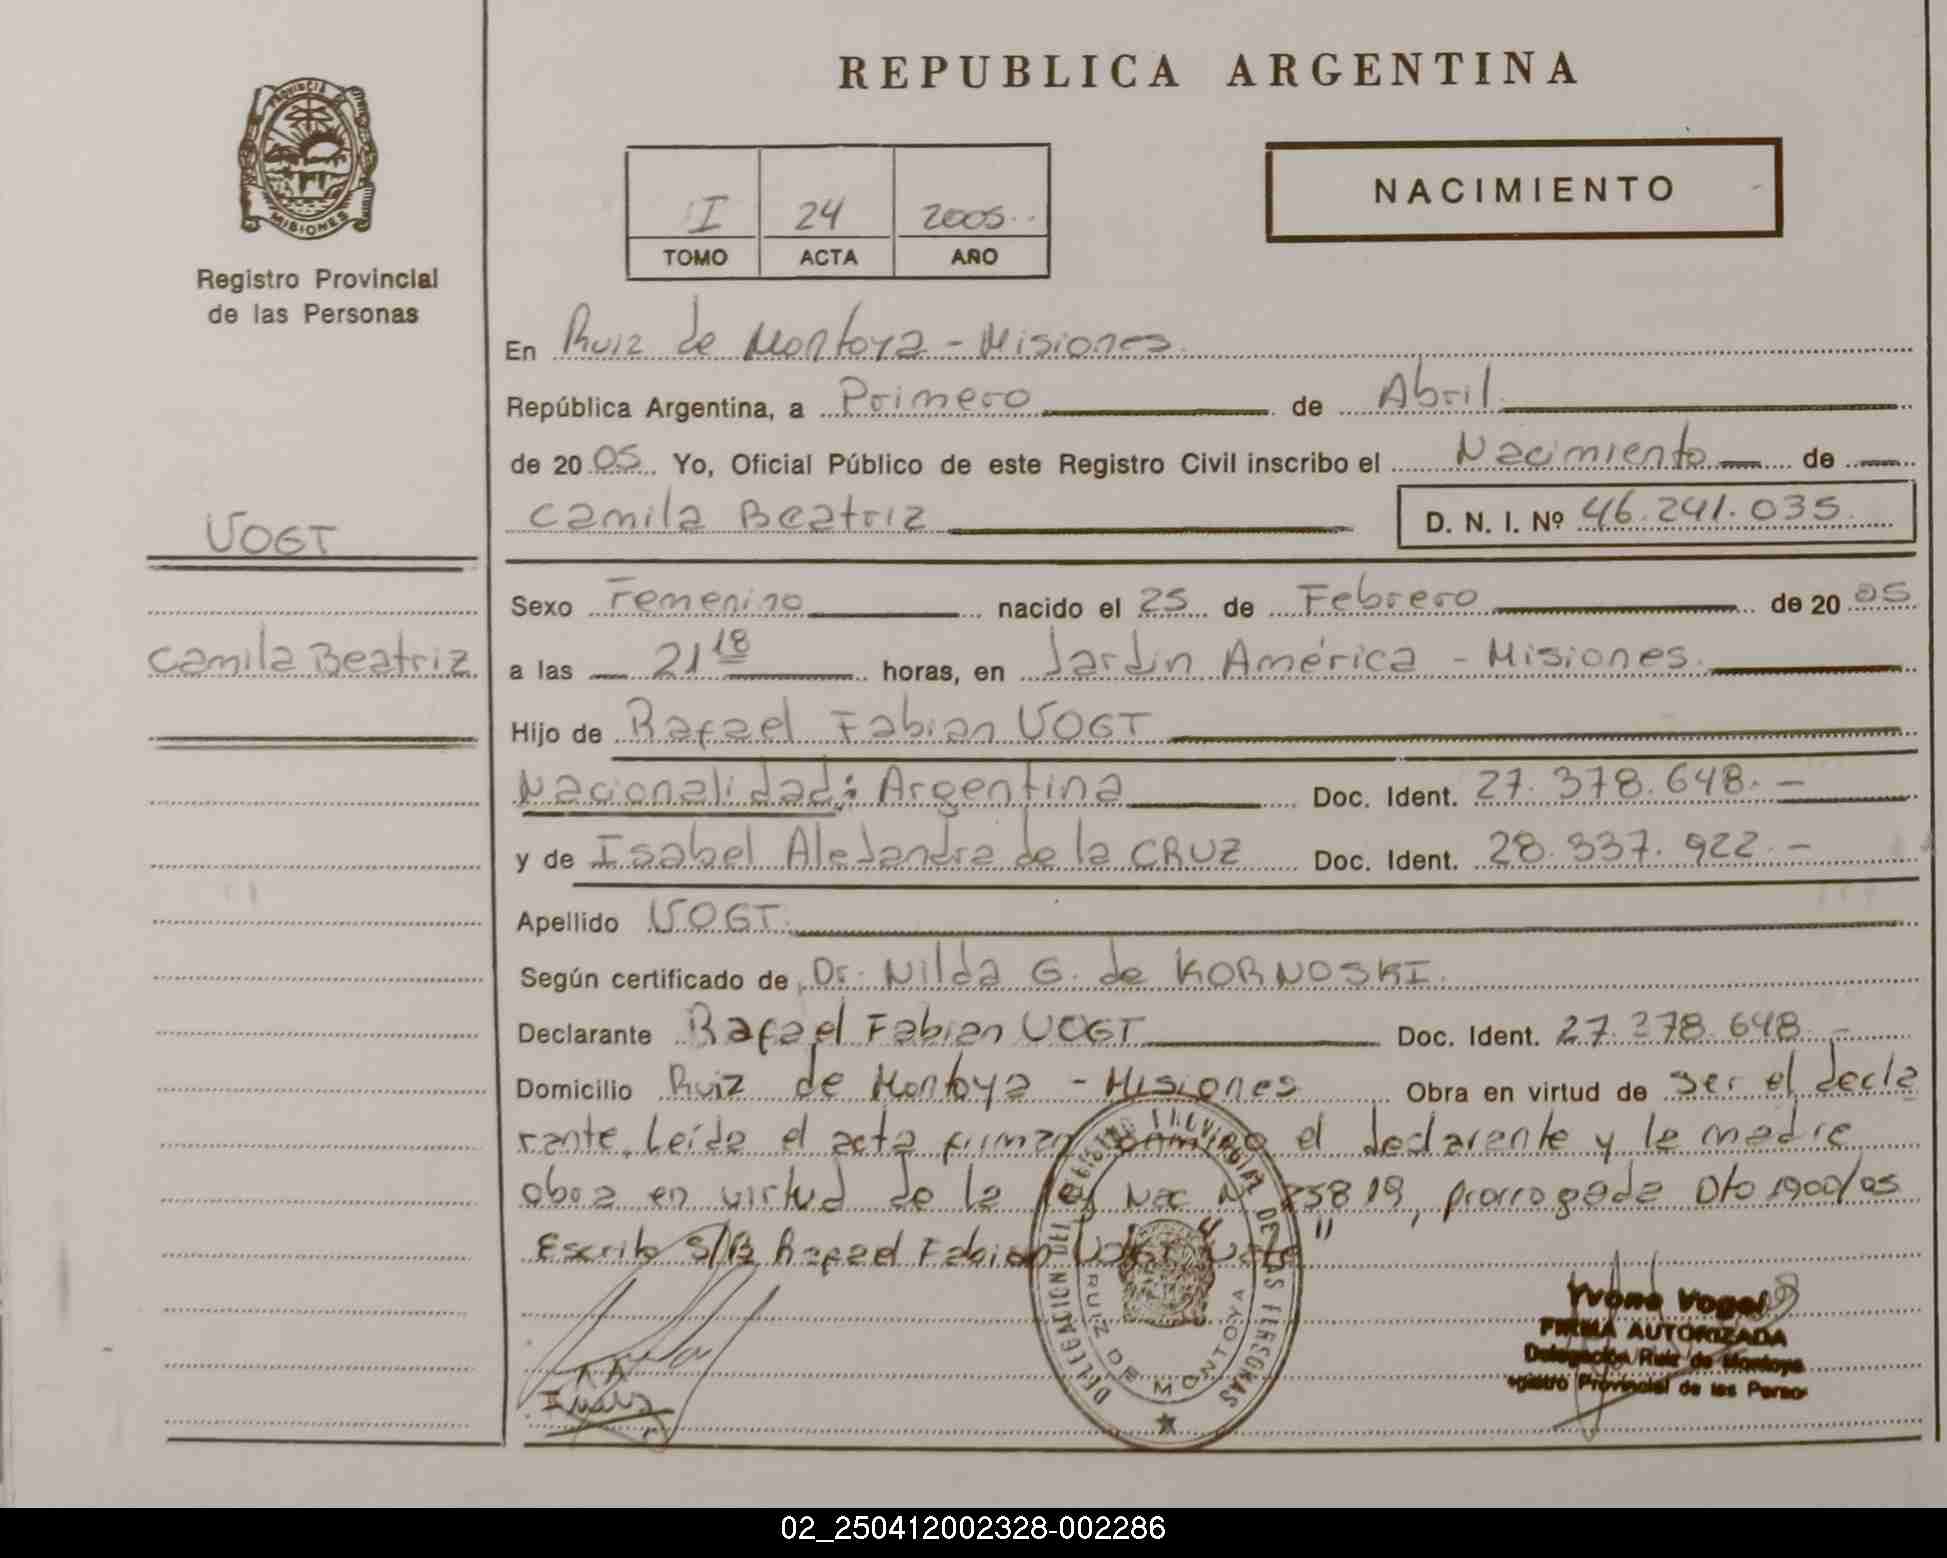 REPUBLICA ARGENTINA
PROVINCIA DE
MISIONES
Registro Provincial
de las Personas
NACIMIENTO
I 24 2005
TOMO ACTA AÑO
En Ruiz de Montoya - Misiones.
República Argentina, a Primero de Abril
de 2005 Yo, Oficial Público de este Registro Civil inscribo el Nacimiento de
Camila Beatriz D. N. I. Nº 46.241.035.
VOGT
Camila Beatriz
Sexo Femenino nacido el 25 de Febrero de 2005
a las 21 18 horas, en Jardin América - Misiones.
Hijo de Rafael Fabian VOGT
Nacionalidad: Argentina Doc. Ident. 27.378.648.-
y de Isabel Alejandra de la CRUZ Doc. Ident. 28.337.922.-
Apellido VOGT.
Según certificado de Dr. Nilda G. de KORNOSKI.
Declarante Rafael Fabian VOGT Doc. Ident. 27.378.648.-
Domicilio Ruiz de Montoya - Misiones Obra en virtud de ser el decla
rante. Leída el acta firman conmigo el declarante y la madre
obra en virtud de la ley Nac N 25819, prorrogada Dto 1900/05
Escrito S/B Rafael Fabian Vogt "Vale"
DELEGACION DEL REGISTRO PROVINCIAL DE LAS PERSONAS
RUIZ DE MONTOYA
Yvone Vogel
FIRMA AUTORIZADA
Delegación Ruiz de Montoya
egistro Provincial de las Perso
02_250412002328-002286